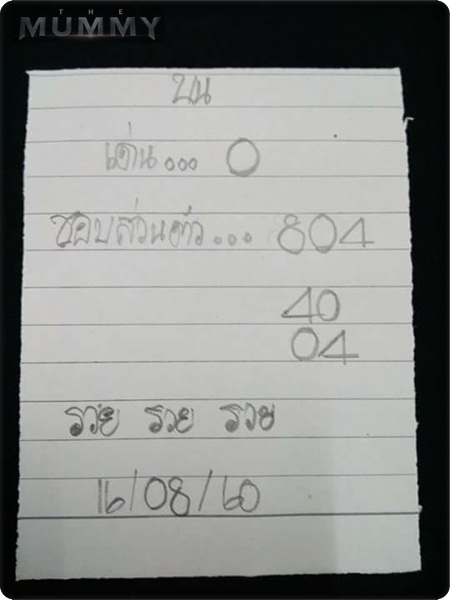 THE
MUMMY
บน
เด่น... 0
ชอบส่วนตัว... 804
40
04
รวย รวย รวย
16/08/60